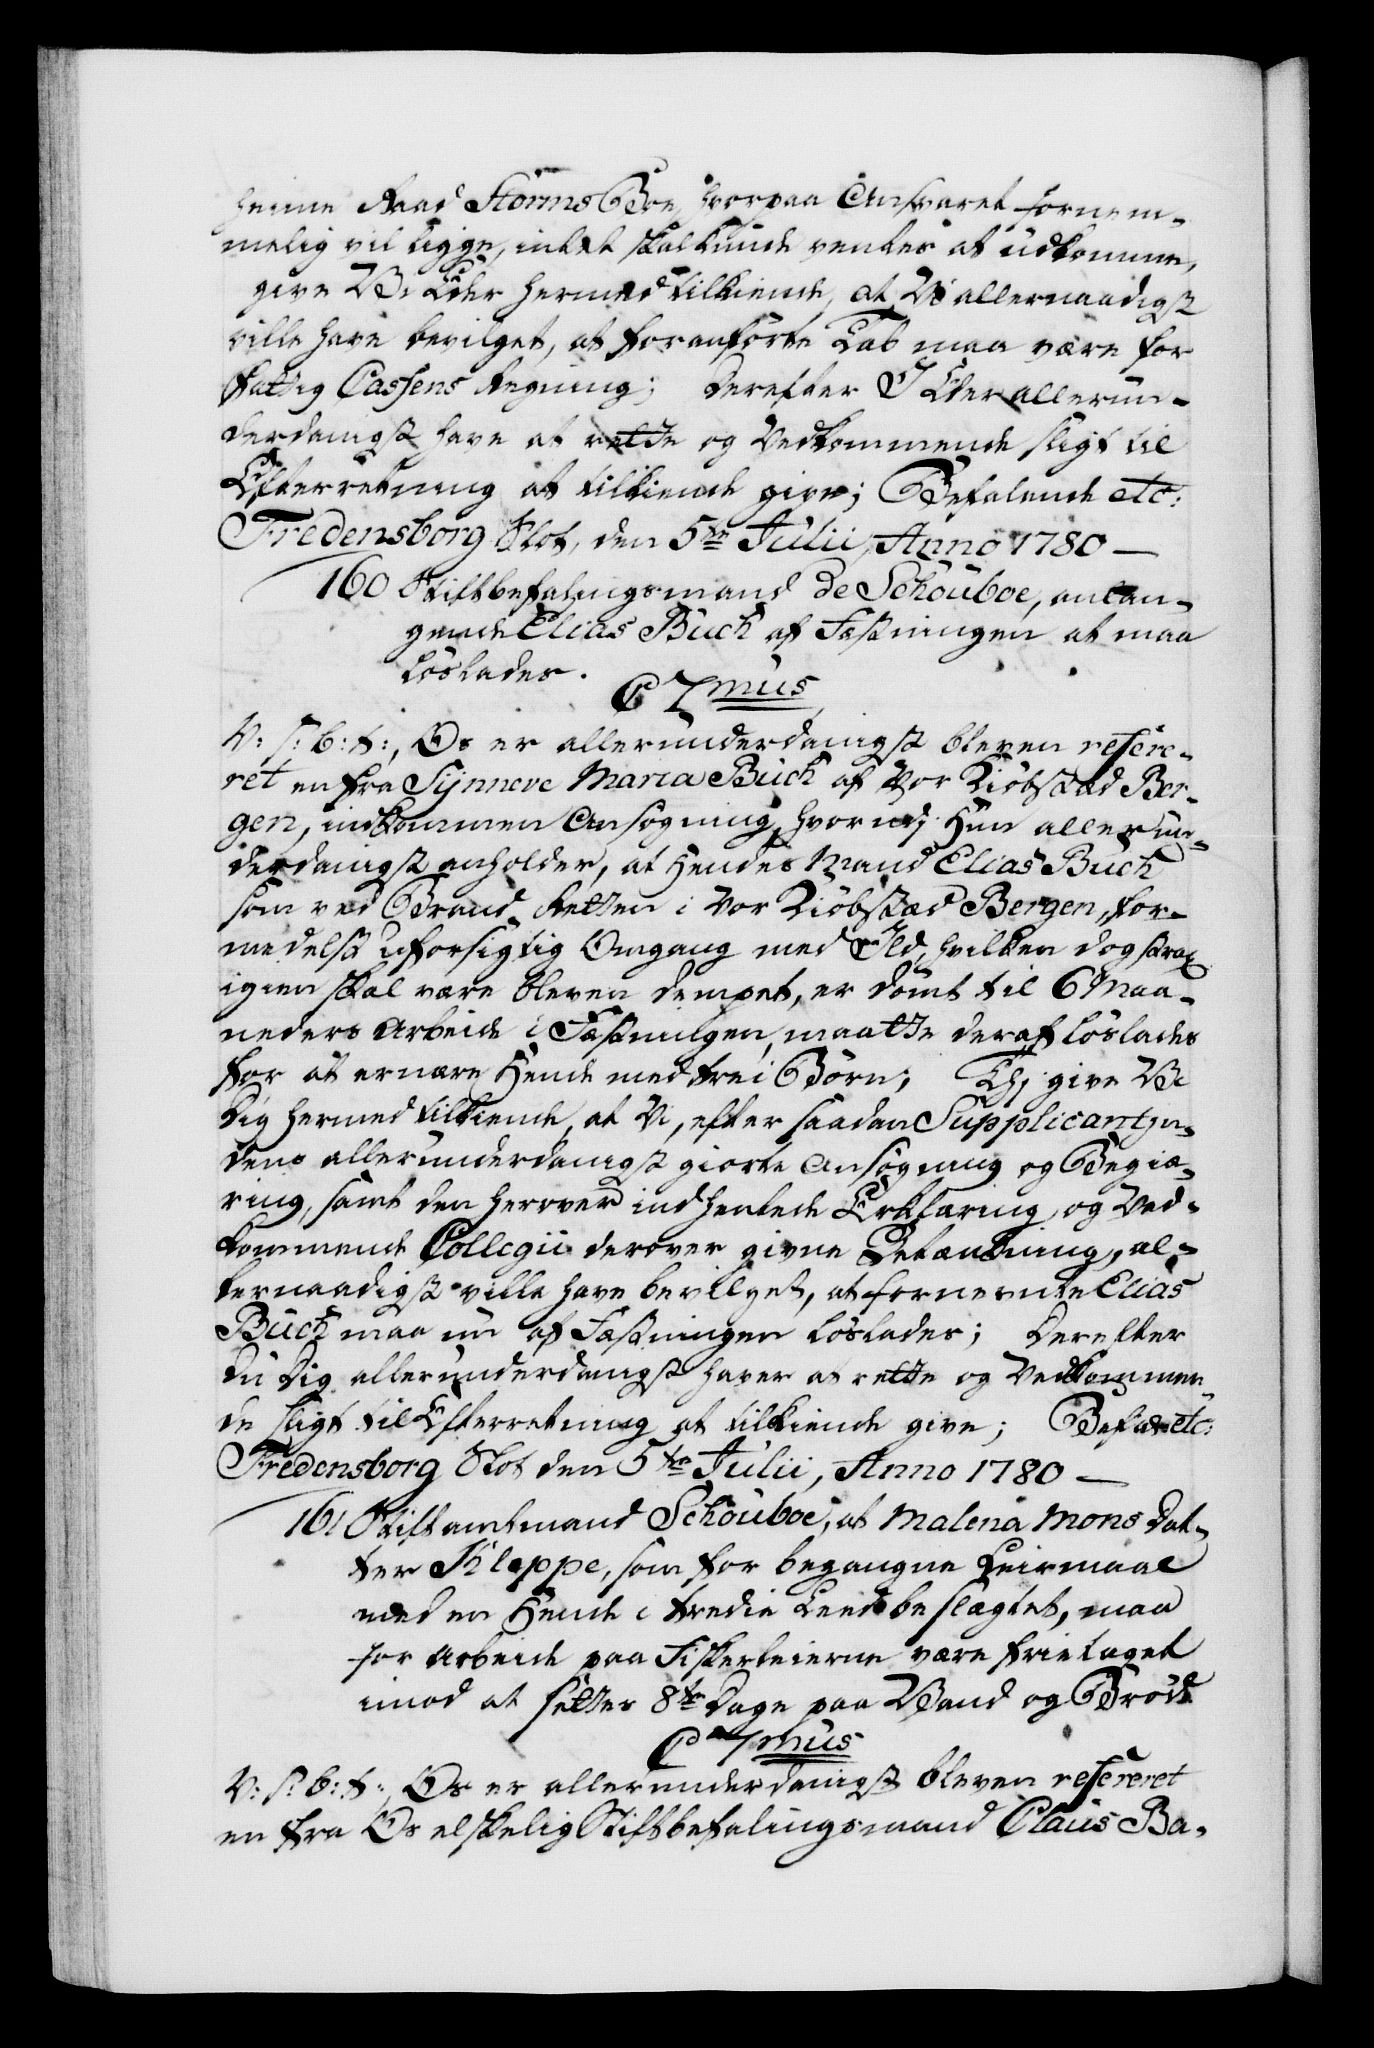 heime Raad Storms Boe, hvorpaa Ansvaret fornem-
melig vil ligge, intet skal kunde ventes at udkomme,
give Vi Eder hermed tilkiende, at Vi allernaadigst
ville have bevilget, at foranførte Tab maa være for
Fattig Cassens Regning; Derefter I Eder allerun-
derdanigst have at rette og Vedkommende sligt til
Efterretning at tilkiende give; Befalende etc:
Fredensborg Slot, den 5te Julii, Anno 1780 —
160 Stiftbefalingsmand de Schouboe, anlan-
gende Elias Buch af Fæstningen at maa
løslades.
C 7mus
V: s: b: t:, Os er allerunderdanigst bleven refere-
ret en fra Synneve Maria Buch af Vor Kiøbstæd Ber-
gen, indkommen Ansøgning, hvorudj Hun allerun-
derdanigst anholder, at Hendes Mand Elias Buch
som ved Brand-Retten i Vor Kiøbstæd Bergen, for-
medelst uforsigtig Omgang med Ild, hvilken dog strax
igien skal være bleven dempet, er dømt til 6 Maa-
neders Arbeide i Fæstningen, maatte deraf løslades
for at ernære Hende med trei Børn; Thj give Vi
Dig hermed tilkiende, at Vi, efter saadan Supplicantin-
dens allerunderdanigst giorte Ansøgning og Begiæ-
ring, samt den herover indhentede Erklæring og Ved-
kommende Collegii derover givne Betænkning, al-
lernaadigst ville have bevilget, at fornevnte Elias
Buch maa nu af Fæstningen løslades; Derefter
Du Dig allerunderdanigst haver at rette og Vedkommen-
de sligt til Efterretning at tilkiende give; Befal: etc:
Fredensborg Slot den 5te Julii, Anno 1780 —
161 Stiftamtmand Schouboe, at Malena Mons Dat-
ter Kleppe, som for begangne Leiermaal
med en Hende i tredie Leed beslægtet, maa
for Arbeide paa Fiskerleierne være fritaget
imod at sættes 8te Dage paa Vand og Brød
C 7mus
V: s: b: t:, Os er allerunderdanigst bleven refereret
en fra Os elskelig Stiftbefalingsmand Claus Ba-